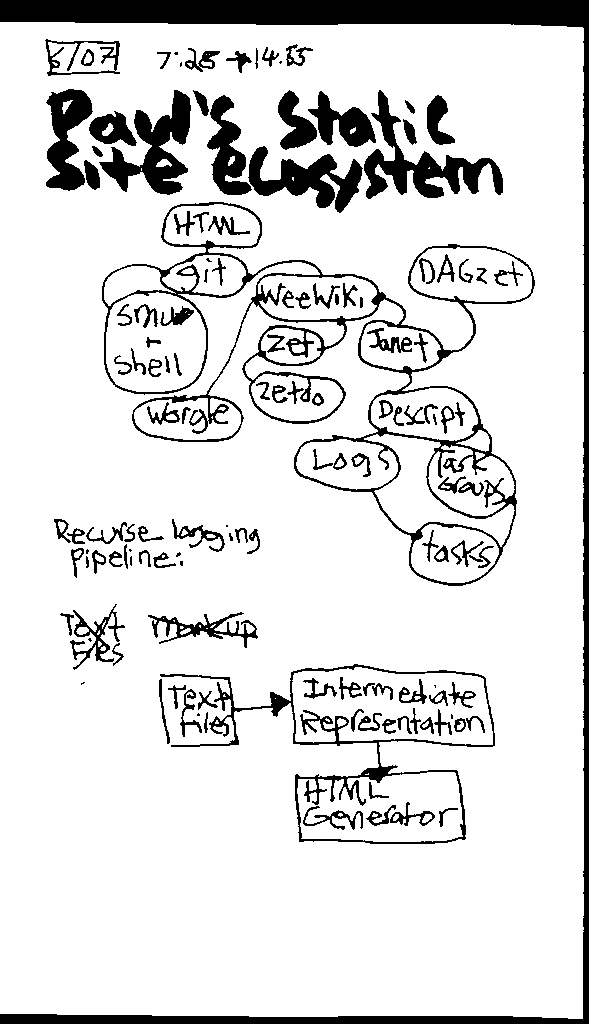 6/07 7:25 → 14:55
Paul's static
site ecosystem
HTML
git
DAGzet
WeeWiki
smu
+
shell
zet
Janet
zetdo
Worgle
Descript
Logs
Task
Groups
tasks
Recurse logging
pipeline:
Text
Files
markup
Text
files
Intermediate
Representation
HTML
Generator